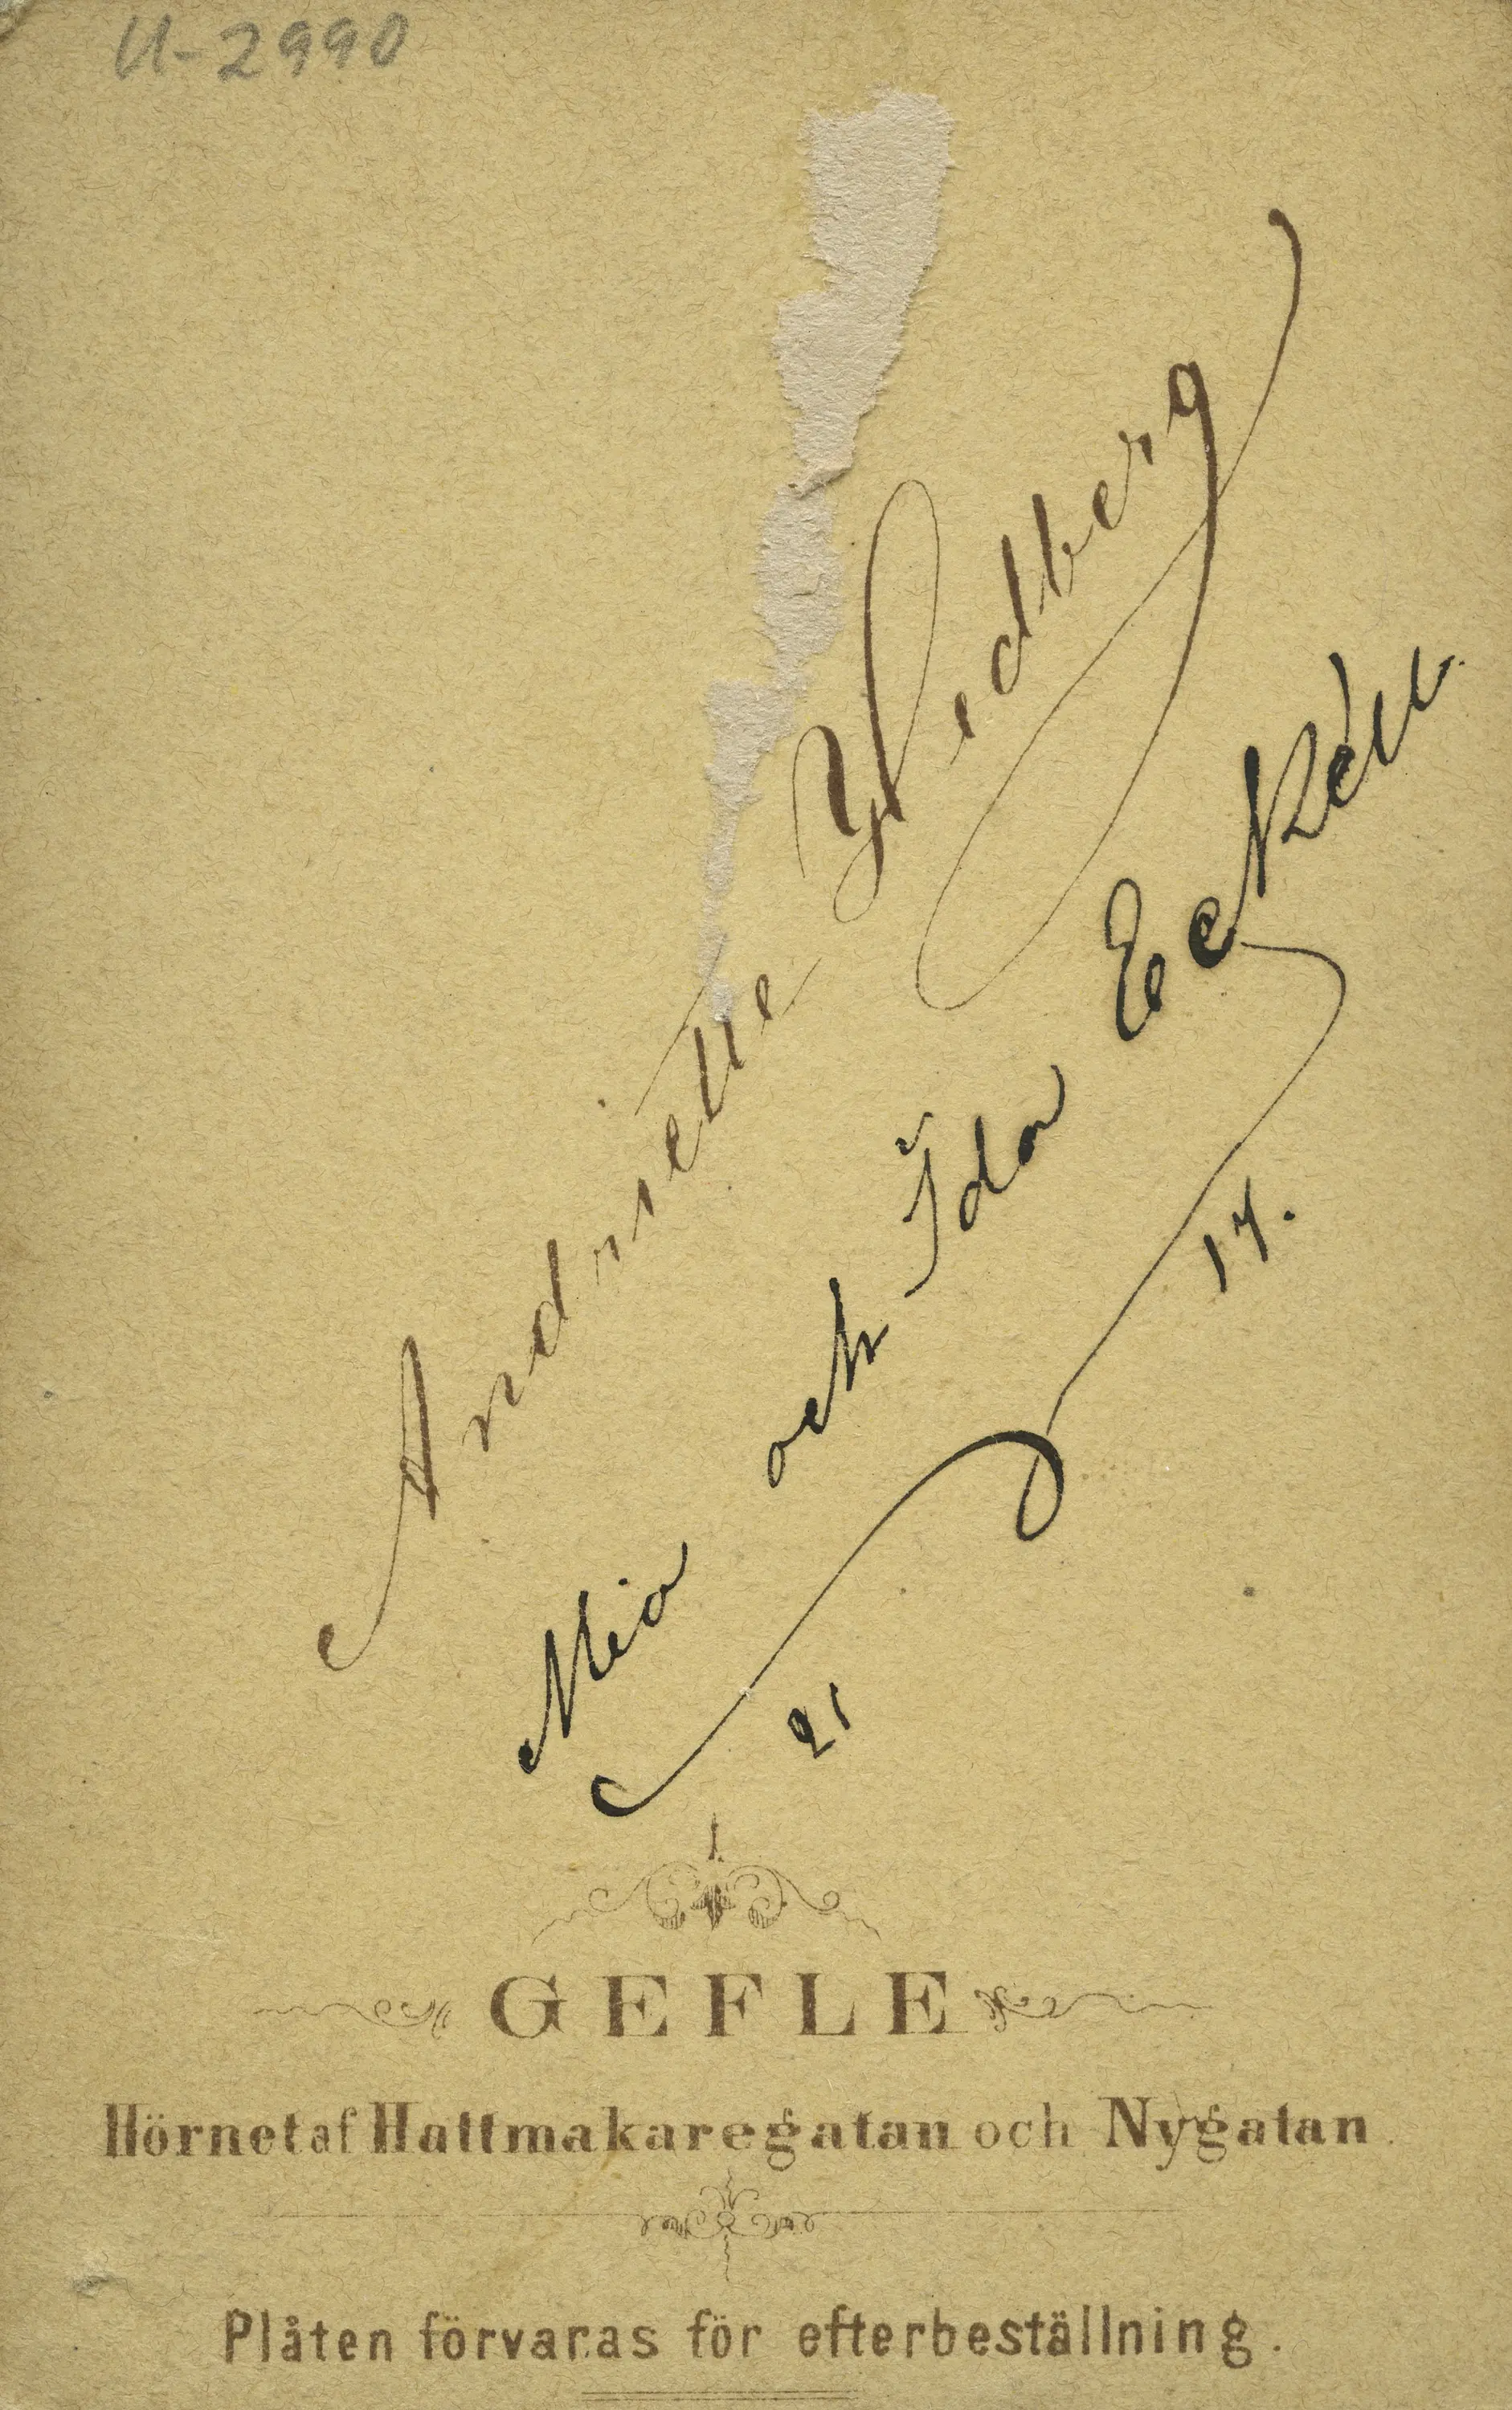 U-2990
Andriette Hedberg
Mia och Ida
21 17.
GEFLE
Hörnet af Hattmakaregatan och Nygatan.
Plåten förvaras för efterbeställning.